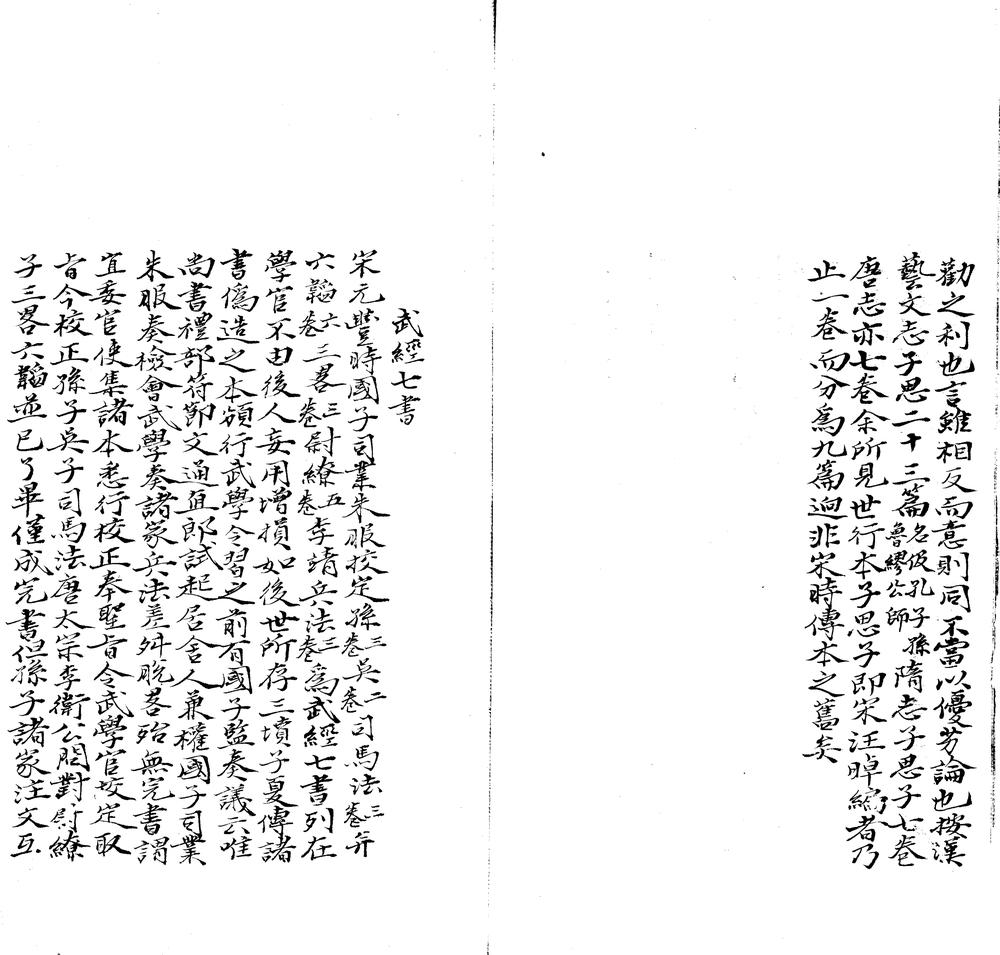 勸之利也言雖相反而意則同不當以優劣論也按漢
藝文志子思二十三篇名伋孔子孫魯繆公師隋志子思子七卷
唐志亦七卷余所見世行本子思子即宋汪晫編者乃
止一卷而分爲九篇迥非宋時傳本之舊矣
武經七書
宋元豐時國子司業朱服校定孫三卷吳二卷司馬法三卷并
六韜六卷三畧三卷尉繚五卷李靖兵法三卷爲武經七書列在
學官不由後人妄用增損如後世所存三墳子夏傳諸
書僞造之本頒行武學令習之前有國子監奏議云唯
尚書禮部符節文通直郎試起居舍人兼權國子司業
朱服奏檢會武學奏諸家兵法差舛脫畧殆無完書謂
宜委官使集諸本悉行校正奉聖旨令武學官校定取
旨今校正孫子吳子司馬法唐太宗李衛公問對尉繚
子三畧六韜並已了畢僅成完書但孫子諸家注文互